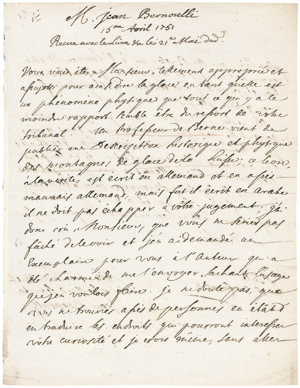 M. Jean Bernoulli
15me Avril 1761
Recue avec le Livre le 21me Mai dud.
Vous vous êtes, Monsieur, tellement approprié et
pour ainsi dire la glace, en tant qu'elle est
un phenomene physique que tout ce qui y a le
moindre rapport semble être du ressort de votre
tribunal. Un Professeur de Berne vient de
publier une Description historique et physique
des montagnes de glace de la Suisse, ce livre
à la verité est écrit en allemand et en assés
mauvais allemand, mais fut il écrit en arabe
il ne doit pas échapper à votre jugement. J'ai
donc cru, Monsieur, que vous ne seriés pas
faché de le voir et j'en ai demandé un
Exemplaire pour vous à l'Auteur qui a
été charmé de me l'envoyer, sachant l'usage
que j'en voulois faire. Je ne doute pas que
vous ne trouviés assés de personnes en état
de traduire les endroits qui pourront interesser
votre curiosité et je dois même, sans aller